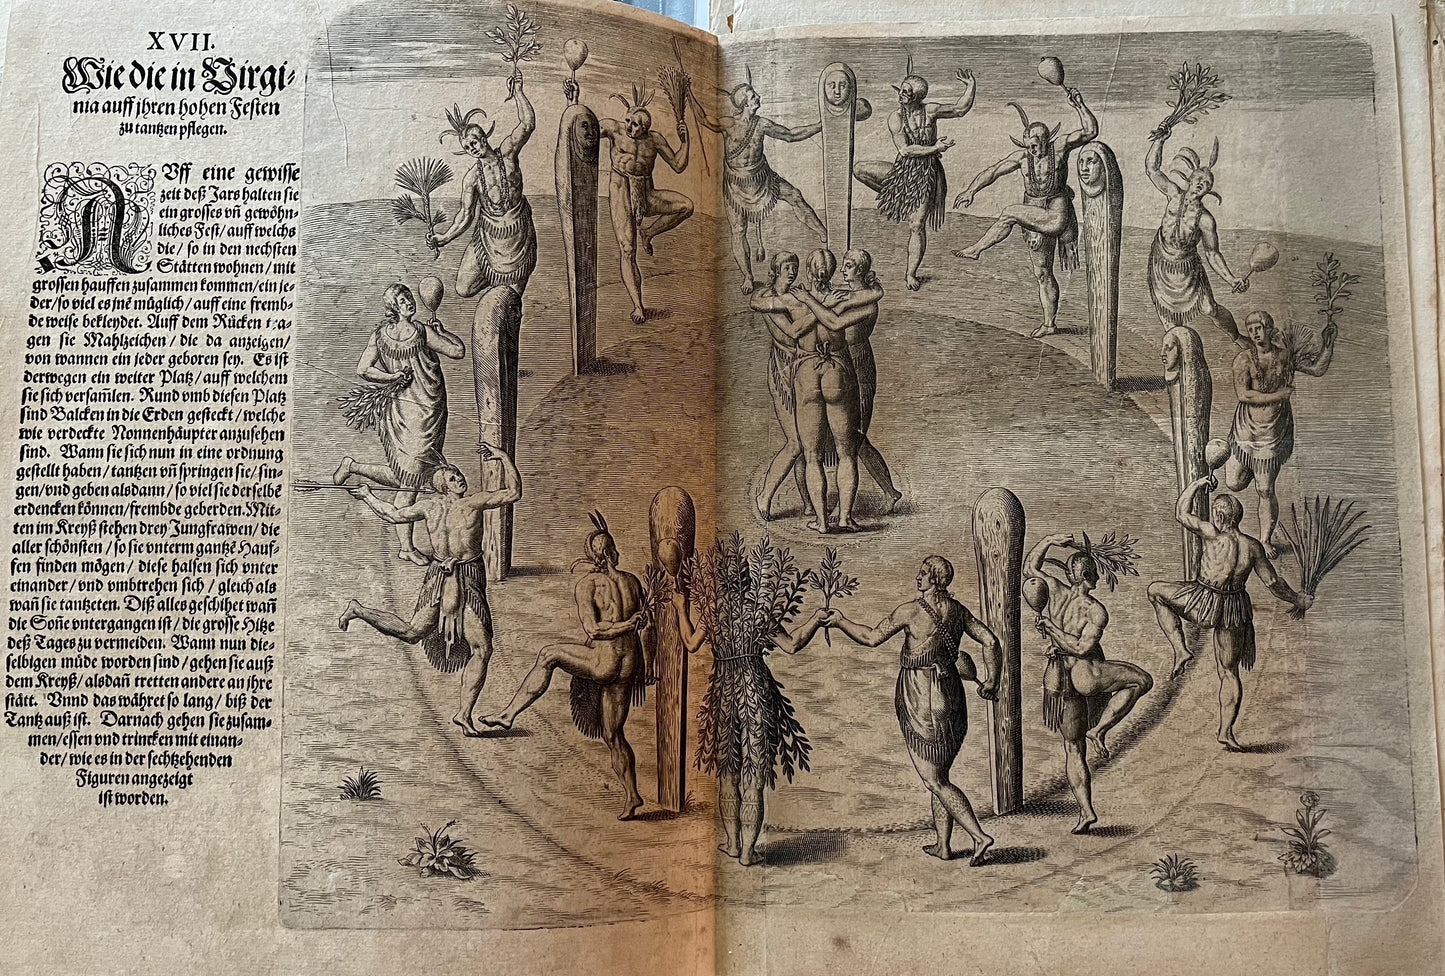 XVII.
Wie die in Virgi-
nia auff jhren hohen Festen
zu tantzen pflegen.
AUff eine gewisse
zeit deß Jars halten sie
ein grosses uñ gewöhn-
liches Fest/ auff welchs
die/ so in den nechsten
Stätten wohnen/ mit
grossen hauffen zusammen kommen/ ein je-
der/ so viel es jnẽ müglich/ auff eine fremb-
de weise bekleydet. Auff dem Rücken tra-
gen sie Mahlzeichen/ die da anzeigen/
von wannen ein jeder geboren sey. Es ist
derwegen ein weiter Platz/ auff welchem
sie sich versam̃len. Rund vmb diesen Platz
sind Balcken in die Erden gesteckt/ welche
wie verdeckte Nonnenhäupter anzusehen
sind. Wann sie sich nun in eine ordnung
gestellt haben/ tantzen vñ springen sie/ sin-
gen/ vnd geben alsdann/ so viel sie derselbẽ
erdencken können/ frembde geberden. Mit-
ten im Kreyß stehen drey Jungfrawen/ die
aller schönsten/ so sie vnterm gantzẽ Hauf-
fen finden mögen/ diese halsen sich vnter
einander/ vnd vmbtrehen sich/ gleich als
wañ sie tantzeten. Diß alles geschihet wañ
die Soñe vntergangen ist/ die grosse Hitze
deß Tages zu vermeiden. Wann nun die-
selbigen müde worden sind/ gehen sie auß
dem Kreyß/ alsdañ tretten andere an jhre
stätt. Vnnd das währet so lang/ biß der
Tantz auß ist. Darnach gehen sie zusam-
men/ essen vnd trincken mit einan-
der/ wie es in der sechtzehenden
Figuren angezeigt
ist worden.